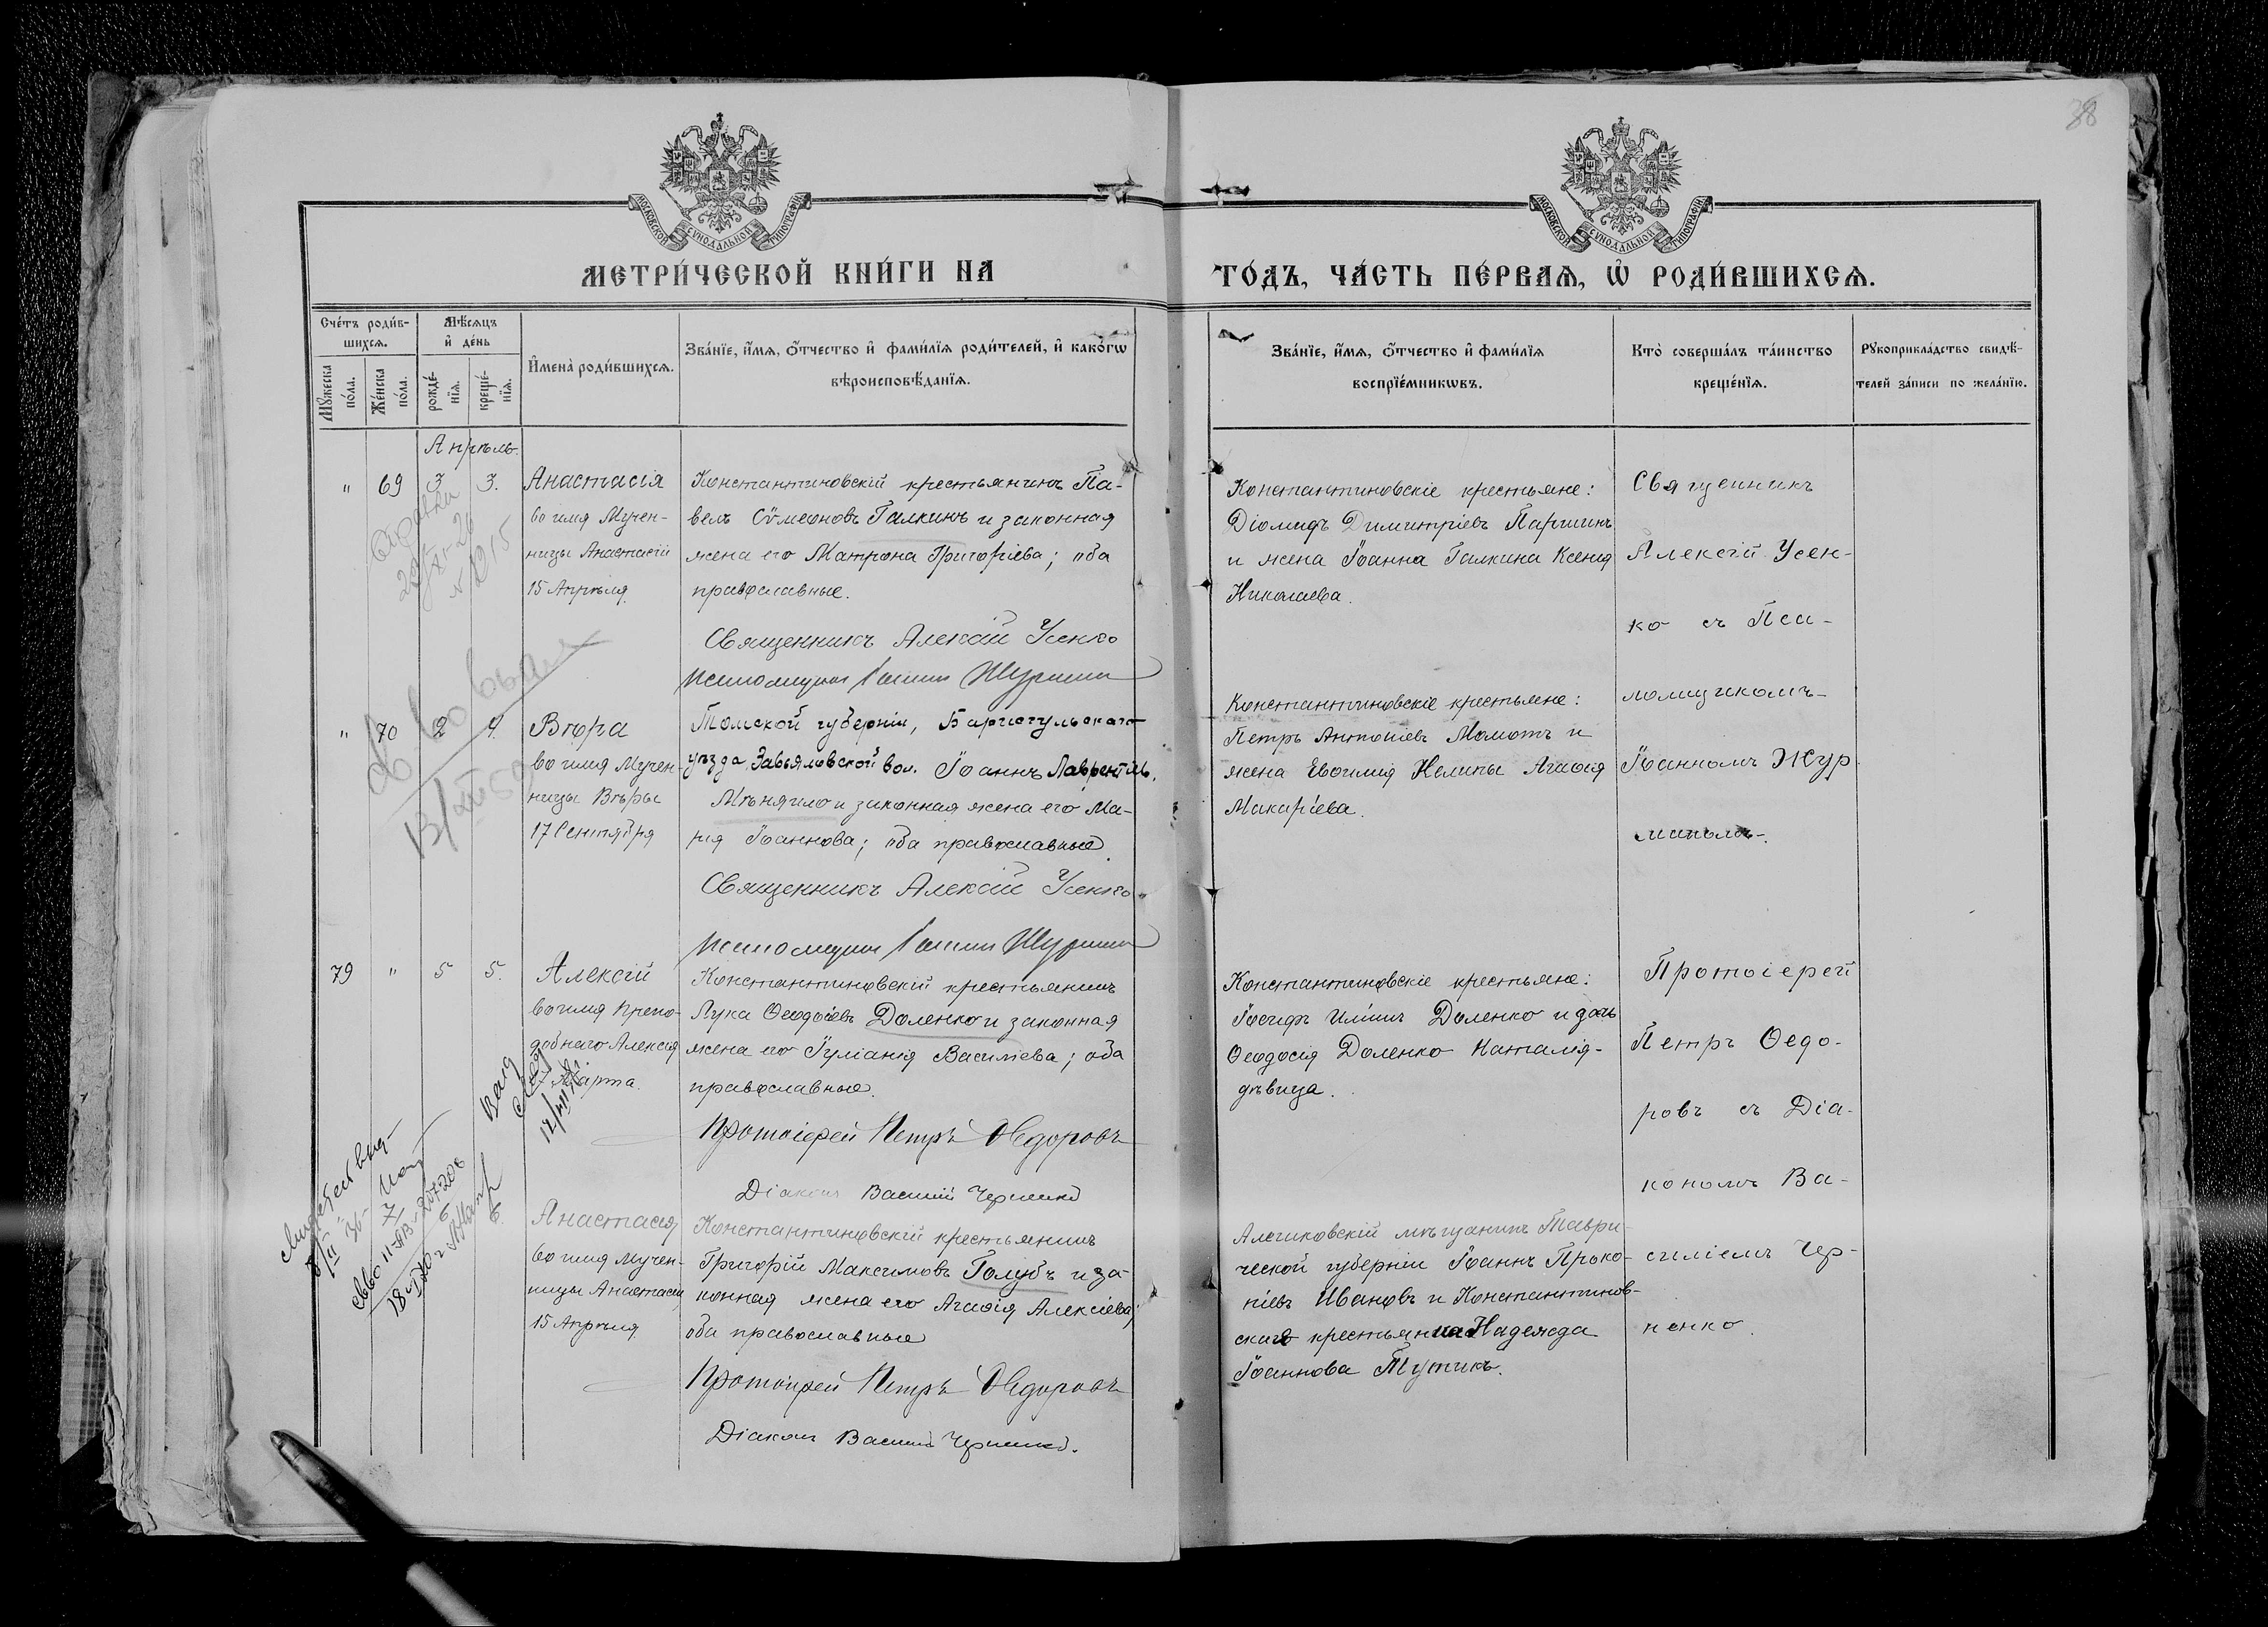 38
МОСКОВСКОЙ СѴНОДАЛЬНОЙ ТИПОГРАФІИ
МОСКОВСКОЙ СѴНОДАЛЬНОЙ ТИПОГРАФІИ
МЕТРИ́ЧЕСКОЙ КНИ́ГИ НА
ГО́ДЪ, ЧА́СТЬ ПЕ́РВАѦ, Ѡ РОДИ́ВШИХСѦ.
Сче́тъ роди́в-
шихсѧ.
Мꙋ́жеска
по́ла.
Же́нска
по́ла.
Мѣ́сѧцъ
и҆ де́нь
рожде́-
нїѧ.
креще́-
нїѧ.
И҆мена̀ роди́вшихсѧ.
Зва́нїе, и҆́мѧ, о҆́тчество и҆ фами́лїѧ роди́телей, и҆ како́гѡ
вѣроисповѣ́данїѧ.
Зва́нїе, и҆́мѧ, о҆́тчество и҆ фами́лїѧ
воспрїе́мникѡвъ.
Кто̀ соверша́лъ та́инство
креще́нїѧ.
Рꙋкоприкла́дство свидѣ́-
телей за́писи по жела́нїю.
Апрѣль.
" 69 3 3.
Анастасія
во имя Мучен-
ницы Анастасіи
15 Апрѣля
Константиновскій крестьянинъ Па-
велъ Сѵмеоновъ Галкинъ и законная
жена его Матрона Григоріева; оба
православные.
Священникъ Алексій Усенко
Константиновскіе крестьяне:
Діомидъ Димитріевъ Паршинъ
и жена Іоанна Галкина Ксенія
Николаева.
Священникъ
Алексій Усен-
ко съ Пса-
ломщикомъ
Іоанномъ Жур
" 70 2 4.
Вѣра
во имя Мучен-
ницы Вѣры
17 Сентября
Томской губерніи, Барнаульскаго
уѣзда, Завьяловской вол. Іоаннъ Лаврентьев.
Мѣняило и законная жена его Ма-
рія Іоаннова; оба православные.
Священникъ Алексій Усенко
Константиновскіе крестьяне:
Петръ Антоніевъ Мамотъ и
жена Евѳимія Келипы Агаѳія
Макаріева.
79 " 5 5.
Алексій
во имя Препо-
добнаго Алексія
Марта.
Константиновскій крестьянинъ
Лука Ѳеодосіевъ Доленко и законная
жена его Іуліанія Василіева; оба
православные.
Протоіерей Петръ Ѳедоровъ
Діаконъ Василій Черненко
Константиновскіе крестьяне:
Іосифъ Иліинъ Доленко и дочь
Ѳеодосія Доленко Наталія-
дѣвица.
Протоіерей
Петръ Ѳедо-
ровъ съ Діа-
кономъ Ва-
силіемъ Чер-
ненко.
Анастасія
во имя Мучен-
ницы Анастасіи
15 Апрѣля
Константиновскій крестьянинъ
Григорій Максимовъ Голубъ и за-
конная жена его Агаѳія Алексіева;
оба православные
Протоіерей Петръ Ѳедоровъ
Діаконъ Василій Черненко.
Алешковскій мѣщанинъ Таври-
ческой губерніи Іоаннъ Проко-
піевъ Ивановъ и Константинов-
скаго крестьянина Надежда
Іоаннова Тутикъ.